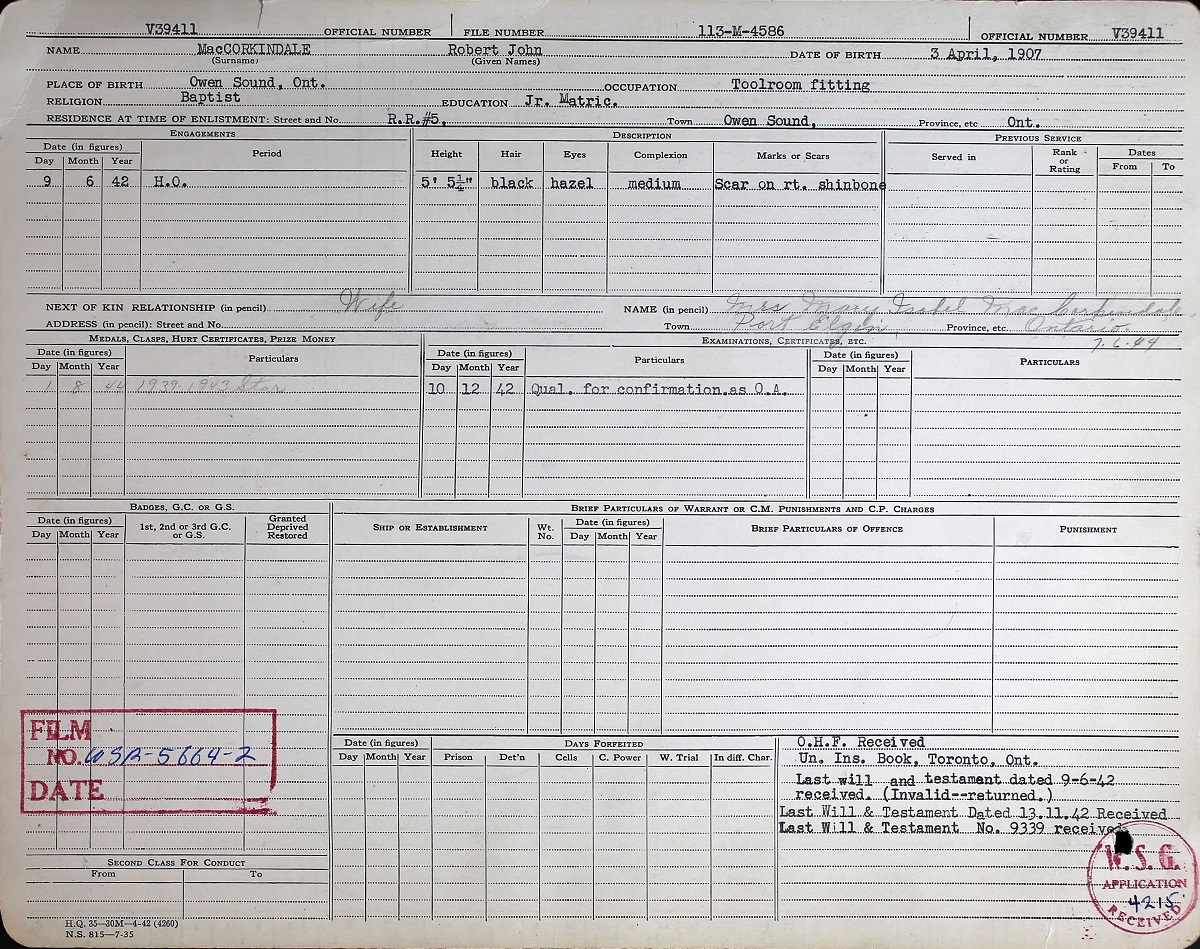 V39411 OFFICIAL NUMBER FILE NUMBER 113-M-4586 OFFICIAL NUMBER V39411
NAME MacCORKINDALE Robert John DATE OF BIRTH 3 April, 1907
(Surname) (Given Names)
PLACE OF BIRTH Owen Sound, Ont. OCCUPATION Toolroom fitting
RELIGION Baptist EDUCATION Jr. Matric.
RESIDENCE AT TIME OF ENLISTMENT: Street and No. R.R.#5, Town Owen Sound, Province, etc Ont.
ENGAGEMENTS DESCRIPTION PREVIOUS SERVICE
Date (in figures) Period Height Hair Eyes Complexion Marks or Scars Served in Rank or Rating Dates
Day Month Year From To
9 6 42 H.O. 5' 5¼" black hazel medium Scar on rt. shinbone
NEXT OF KIN RELATIONSHIP (in pencil) Wife NAME (in pencil) Mrs Mary Isabel MacCorkindale
ADDRESS (in pencil): Street and No. Town Port Elgin Province, etc. Ontario
7.6.44
MEDALS, CLASPS, HURT CERTIFICATES, PRIZE MONEY EXAMINATIONS, CERTIFICATES, ETC.
Date (in figures) Particulars Date (in figures) Particulars Date (in figures) PARTICULARS
Day Month Year Day Month Year Day Month Year
1 8 44 1939-1943 Star 10 12 42 Qual. for confirmation.as O.A.
BADGES, G.C. OR G.S. BRIEF PARTICULARS OF WARRANT OR C.M. PUNISHMENTS AND C.P. CHARGES
Date (in figures) 1st, 2nd or 3rd G.C. or G.S. Granted Deprived Restored SHIP OR ESTABLISHMENT Wt. No. Date (in figures) BRIEF PARTICULARS OF OFFENCE PUNISHMENT
Day Month Year Day Month Year
FILM
NO. WSR-5664-2
DATE
Date (in figures) DAYS FORFEITED
Day Month Year Prison Det'n Cells C. Power W. Trial In diff. Char.
O.H.F. Received
Un. Ins. Book, Toronto, Ont.
Last will and testament dated 9-6-42
received. (Invalid--returned.)
Last Will & Testament Dated 13.11.42 Received
Last Will & Testament No. 9339 received
SECOND CLASS FOR CONDUCT
From To
W.S.G.
APPLICATION
4215
RECEIVED
H.Q. 35—30M—4-42 (4260)
N.S. 815—7-35